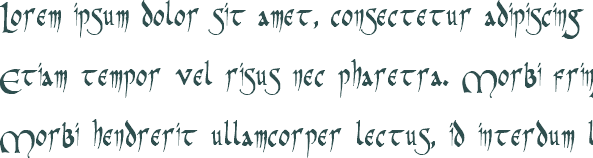 Lorem ipsum dolor sit amet, consectetur adipiscing
Etiam tempor vel risus nec pharetra. Morbi frin
Morbi hendrerit ullamcorper lectus, id interdum l